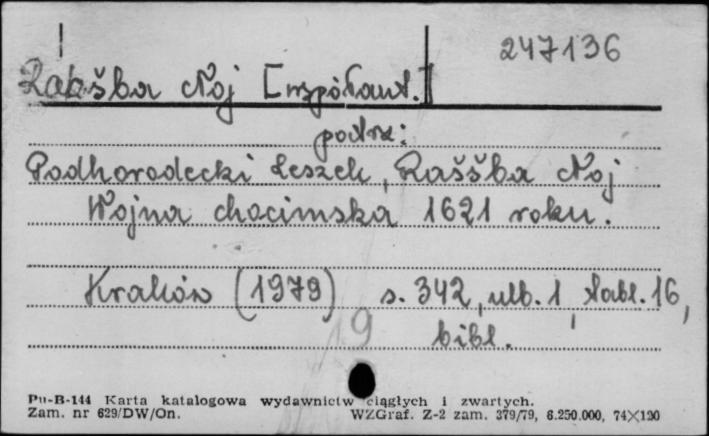 247136
Rašba Noj [współaut.]
patrz:
Podhorodecki Leszek, Raššba Noj
Wojna chocimska 1621 roku.
Kraków (1979) s. 342, ulb. 1, tabl. 16,
19 bibl.
Pu-B-144 Karta katalogowa wydawnictw ciągłych i zwartych.
Zam. nr 629/DW/On. WZGraf. Z-2 zam. 379/79, 6.250.000, 74X120